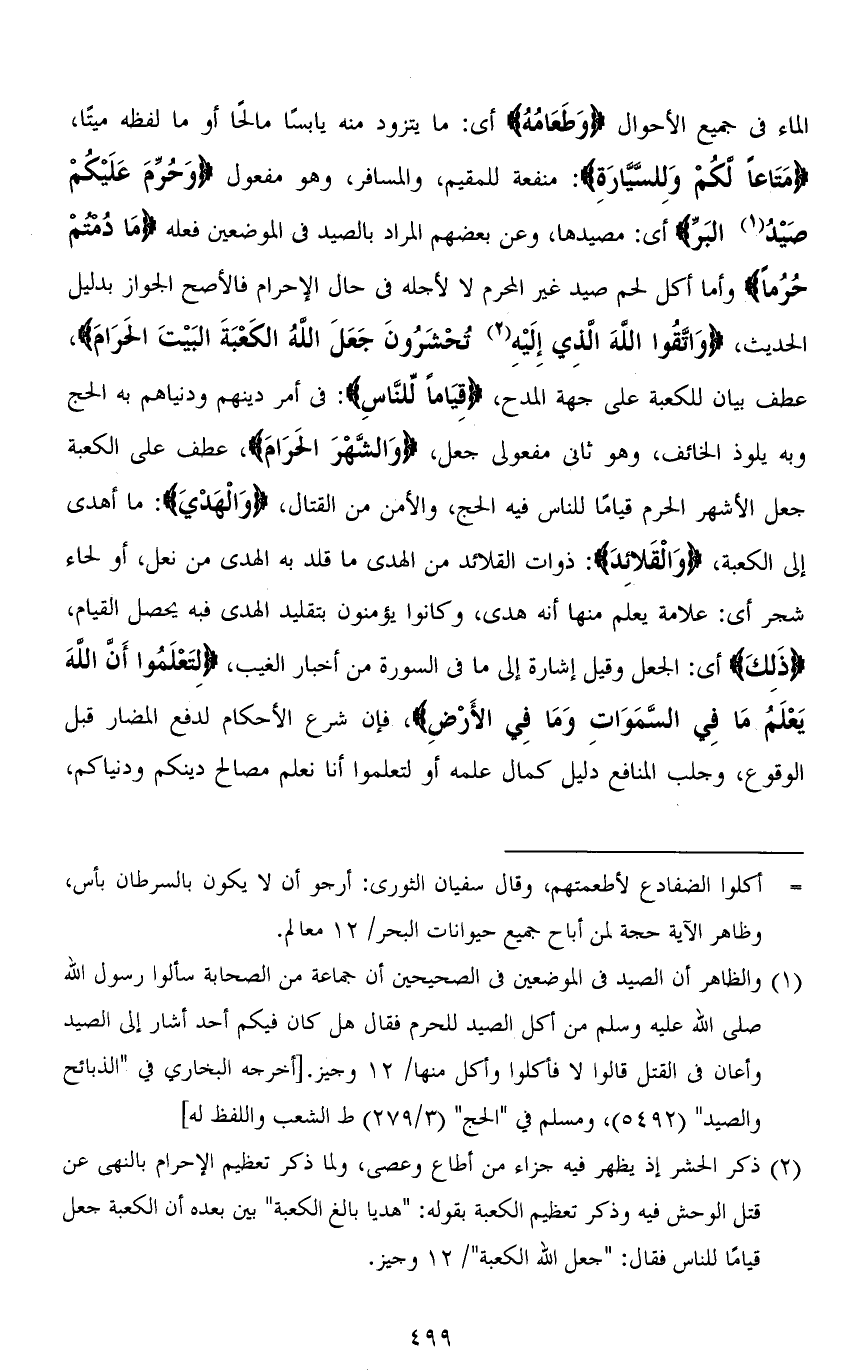 الماء فى جميع الأحوال ﴿وَطَعَامُهُ﴾ أى: ما يتزود منه يابسًا مالحًا أو ما لفظه ميتًا،
﴿مَتَاعاً لَّكُمْ وَلِلسَّيَّارَةِ﴾: منفعة للمقيم، والمسافر، وهو مفعول ﴿وَحُرِّمَ عَلَيْكُمْ
صَيْدُ(١) البَرِّ﴾ أى: مصيدها، وعن بعضهم المراد بالصيد فى الموضعين فعله ﴿مَا دُمْتُمْ
حُرُماً﴾ وأما أكل لحم صيد غير المحرم لا لأجله فى حال الإحرام فالأصح الجواز بدليل
الحديث، ﴿وَاتَّقُوا اللَّهَ الَّذِي إِلَيْهِ(٢) تُحْشَرُونَ جَعَلَ اللَّهُ الكَعْبَةَ البَيْتَ الحَرَامَ﴾،
عطف بيان للكعبة على جهة المدح، ﴿قِيَاماً لِّلنَّاسِ﴾: فى أمر دينهم ودنياهم به الحج
وبه يلوذ الخائف، وهو ثانى مفعولى جعل، ﴿وَالشَّهْرَ الحَرَامَ﴾، عطف على الكعبة
جعل الأشهر الحرم قيامًا للناس فيه الحج، والأمن من القتال، ﴿وَالْهَدْيَ﴾: ما أهدى
إلى الكعبة، ﴿وَالْقَلائِدَ﴾: ذوات القلائد من الهدى ما قلد به الهدى من نعل، أو لحاء
شجر أى: علامة يعلم منها أنه هدى، وكانوا يؤمنون بتقليد الهدى فبه يحصل القيام،
﴿ذَلِكَ﴾ أى: الجعل وقيل إشارة إلى ما فى السورة من أخبار الغيب، ﴿لِتَعْلَمُوا أَنَّ اللَّهَ
يَعْلَمُ مَا فِي السَّمَوَاتِ وَمَا فِي الأَرْضِ﴾، فإن شرع الأحكام لدفع المضار قبل
الوقوع، وجلب المنافع دليل كمال علمه أو لتعلموا أنا نعلم مصالح دينكم ودنياكم،
= أكلوا الضفادع لأطعمتهم، وقال سفيان الثورى: أرجو أن لا يكون بالسرطان بأس،
وظاهر الآية حجة لمن أباح جميع حيوانات البحر/ ١٢ معالم.
(١) والظاهر أن الصيد فى الموضعين فى الصحيحين أن جماعة من الصحابة سألوا رسول الله
صلى الله عليه وسلم من أكل الصيد للحرم فقال هل كان فيكم أحد أشار إلى الصيد
وأعان فى القتل قالوا لا فأكلوا وأكل منها/ ١٢ وجيز.[أخرجه البخاري في "الذبائح
والصيد" (٥٤٩٢)، ومسلم في "الحج" (٢٧٩/٣) ط الشعب واللفظ له]
(٢) ذكر الحشر إذ يظهر فيه جزاء من أطاع وعصى، ولما ذكر تعظيم الإحرام بالنهى عن
قتل الوحش فيه وذكر تعظيم الكعبة بقوله: "هديا بالغ الكعبة" بين بعده أن الكعبة جعل
قيامًا للناس فقال: "جعل الله الكعبة"/ ١٢ وجيز.
٤٩٩